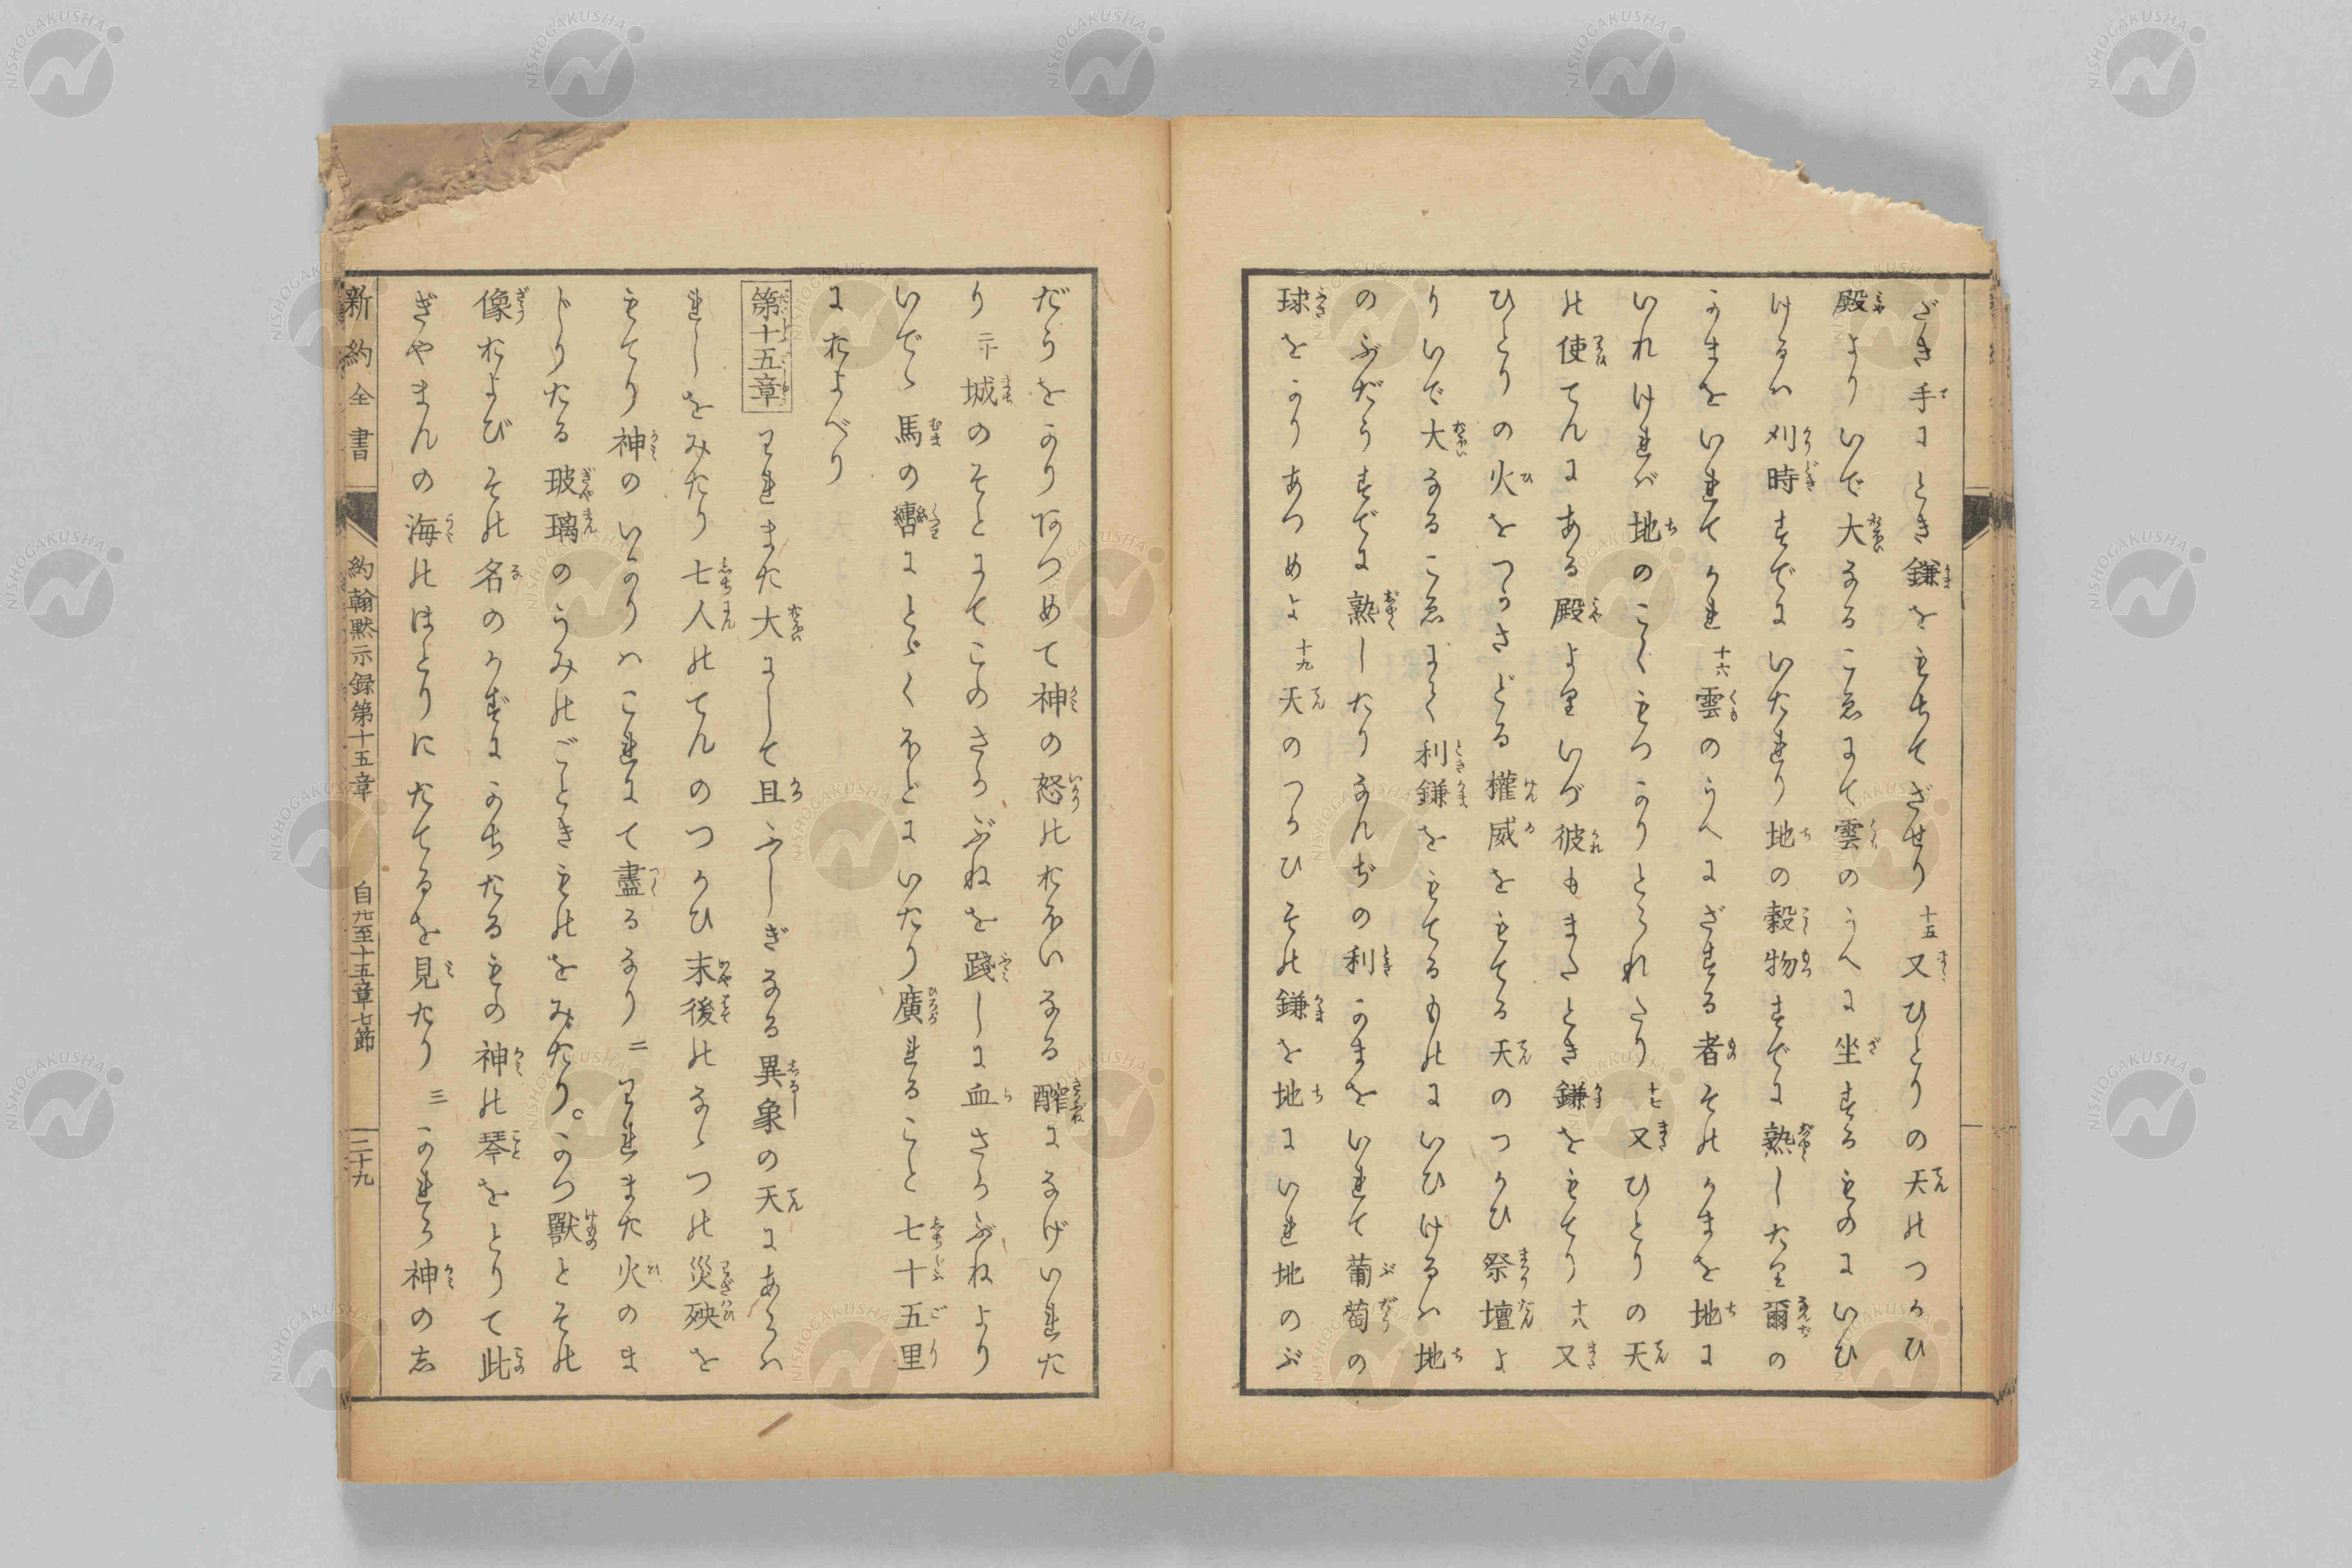 ざき手にとき鎌をもちてざせり十五又ひとりの天のつかひ
殿よりいで大なるこゑにて雲のうへに坐するものにいひ
けるハ刈時すでにいたれり地の穀物すでに熟したり爾の
かまをいれてかれ十六雲のうへにざする者そのかまを地に
いれけれバ地のこくもつかりとられたり十七又ひとりの天
の使てんにある殿よりいづ彼もまたとき鎌をもてり十八又
ひとりの火をつかさどる權威をもてる天のつかひ祭壇よ
りいで大なるこゑにて利鎌をもてるものにいひけるハ地
のぶだうすでに熟したりなんぢの利かまをいれて葡萄の
球をかりあつめよ十九天のつかひその鎌を地にいれ地のぶ
だうをかりあつめて神の怒のおほいなる醡になげいれた
り二十城のそとにてこのさかぶねを踐しに血さかぶねより
いでゝ馬の轡にとゞくほどにいたり廣れること七十五里
におよべり
第十五章 われまた大にして且ふしぎなる異象の天にあらハ
れしをみたり七人のてんのつかひ末後のなゝつの災殃を
もてり神のいかりハこれにて盡るなり二われまた火のま
じりたる玻璃のうみのごときものをみたり。かつ獸とその
像およびその名のかずにかちたるもの神の琴をとりて此
ぎやまんの海のほとりにたてるを見たり三かれら神の志
新約全書 約翰黙示録第十五章 自九至十五章七節 二十九
NISHOGAKUSHA